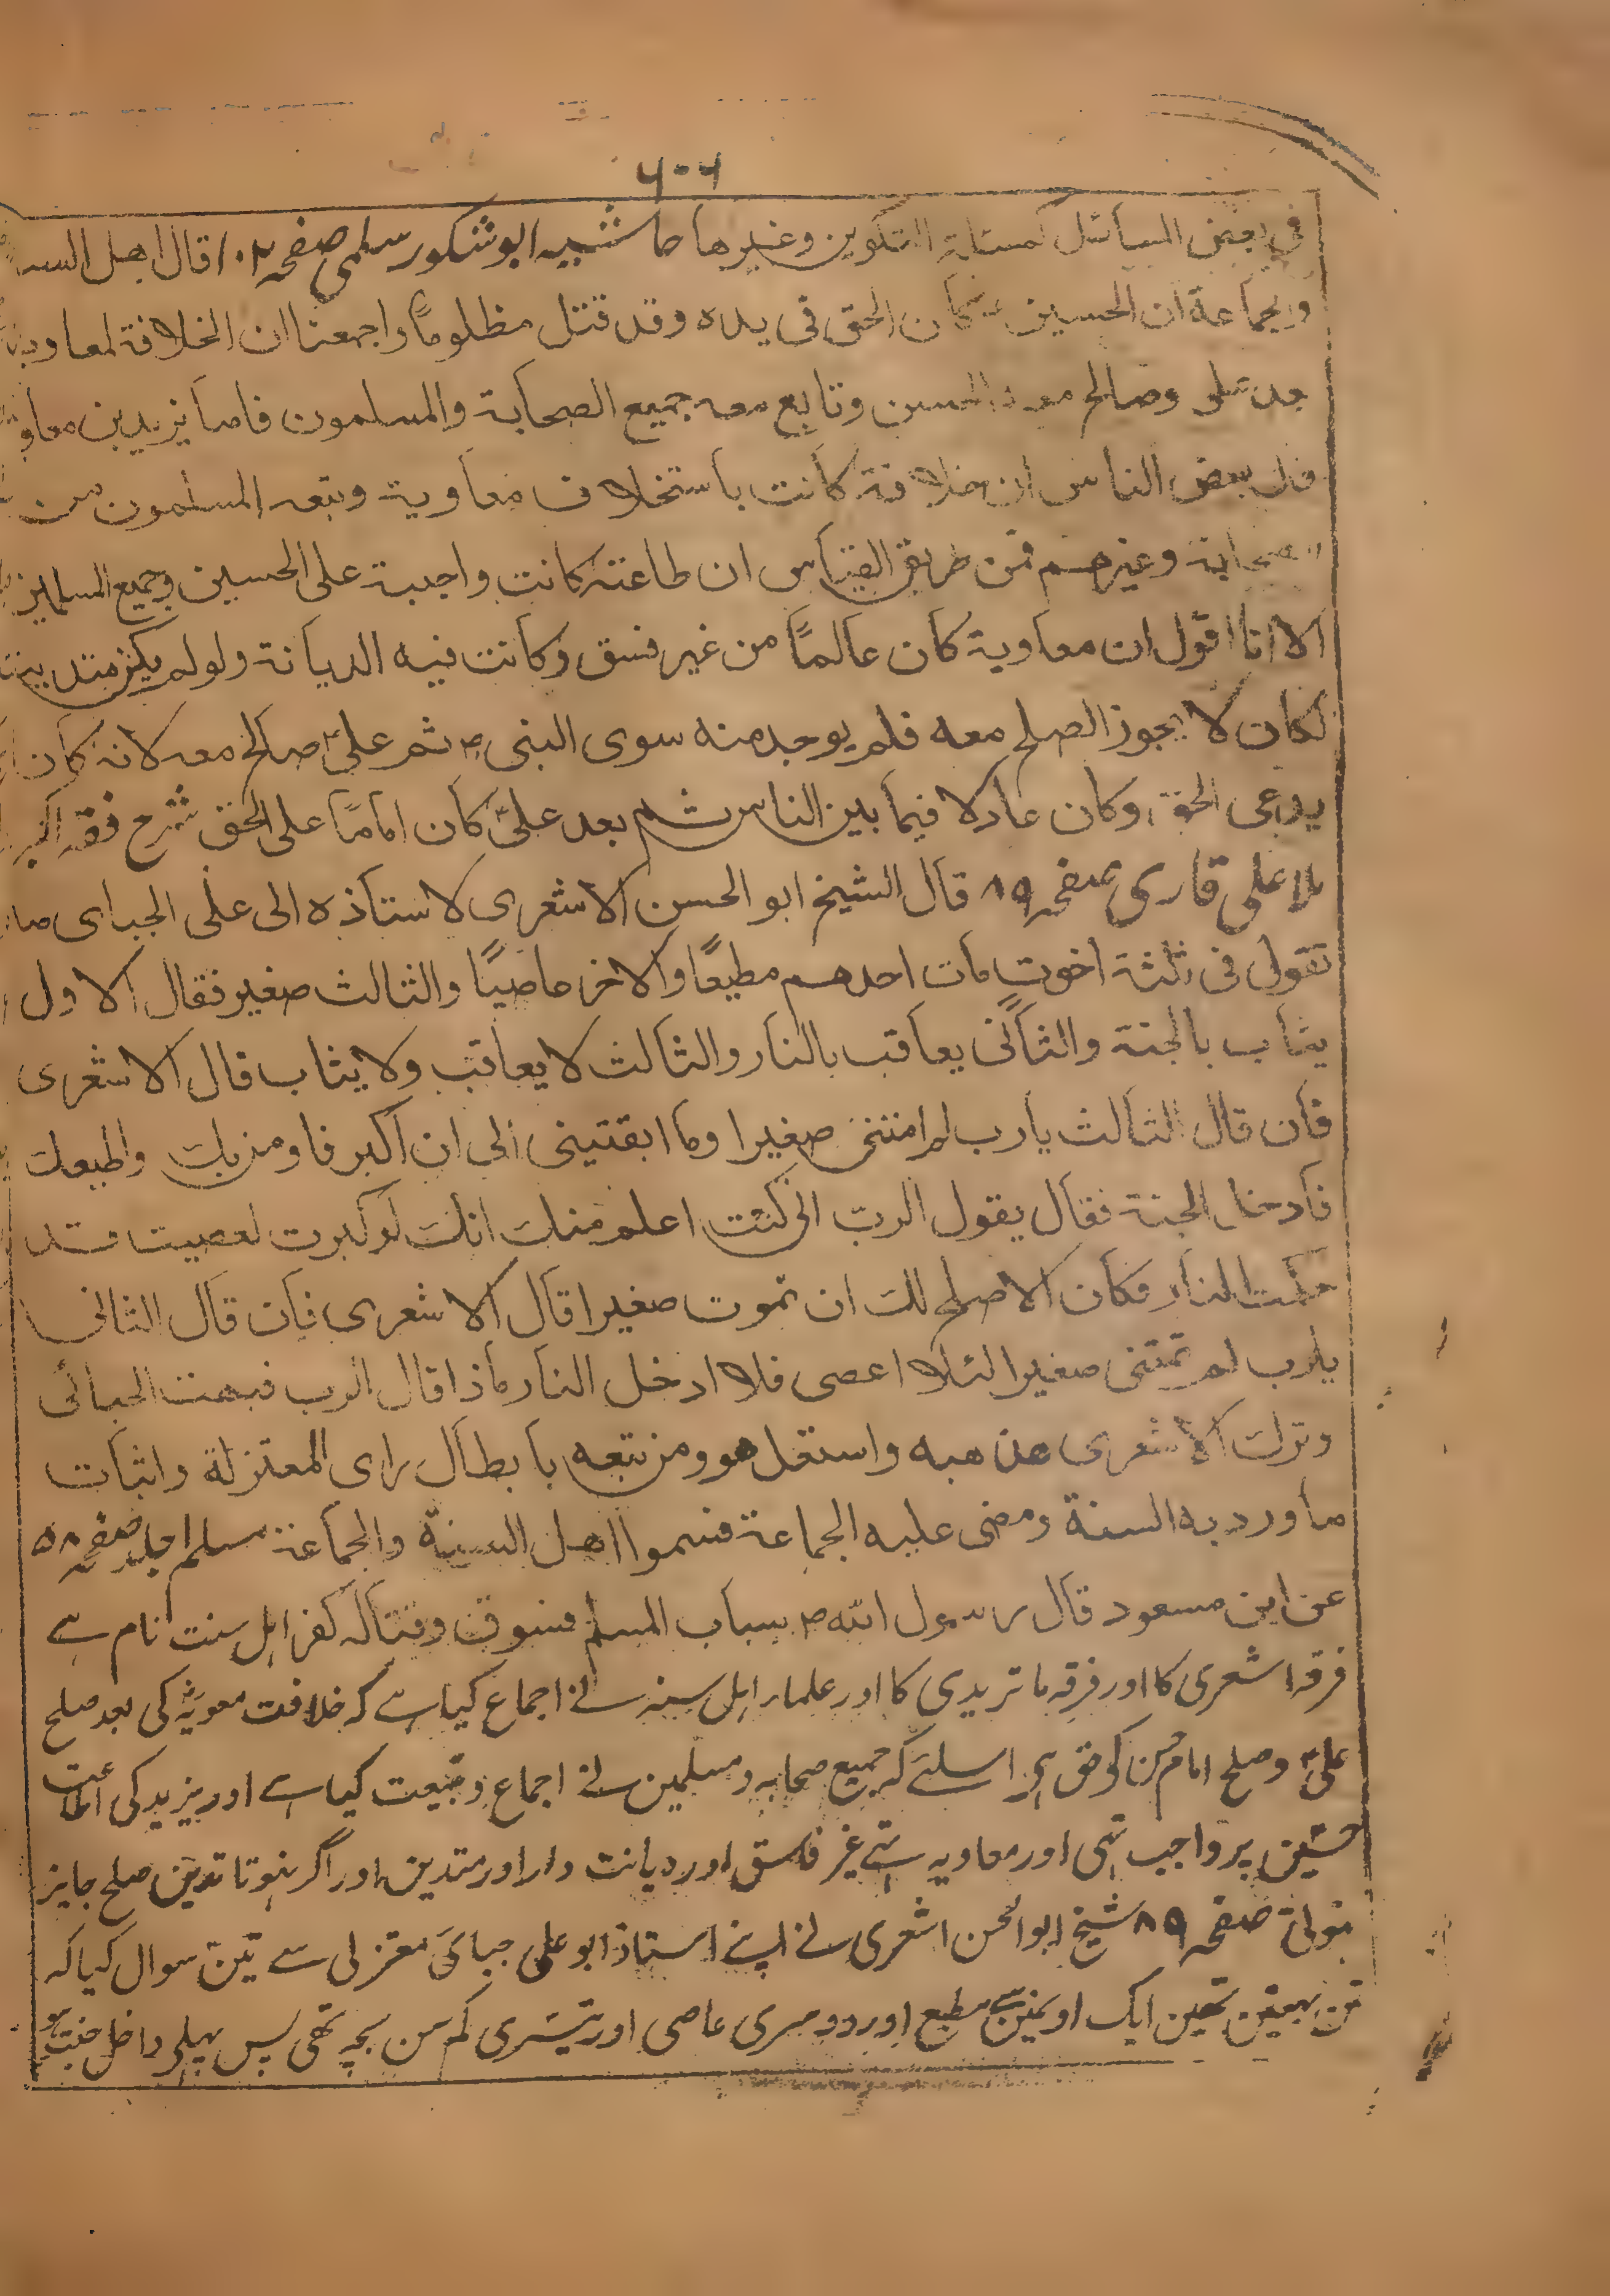 ۶۰۶
في بعض المسائل كمسئلة التكوين وغيرها حاشیہ ابو شکور سلمی صفحہ ۱۰۲ قال اهل السنة
والجماعة ان الحسين كان الحق في يده وقد قتل مظلوماً واجمعنا ان الخلافة لمعاوية
بعد على وصالح معه الحسن وتابع معه جميع الصحابة والمسلمون فاما يزيد بن معاوية
قال بعض الناس ان خلافة كانت باستخلاف معاوية وتبعه المسلمون من
الصحابة وغيرهم فمن طريق القياس ان طاعته كانت واجبة على الحسين وجميع المسلمين
الا انا اقول ان معاوية كان عالماً من غير فسق وكانت فيه الديانة ولو لم يكن متدينا
لكان لا يجوز الصلح معه فلم يوجد منه سوى البغي ثم علىؑ صالح معه لانه كان
يدعى الحق وكان عادلا فيما بين الناس ثم بعد علىؑ كان اماماً على الحق شرح فقه اكبر
ملا علی قاری صفحہ ۸۹ قال الشيخ ابو الحسن الاشعرى لاستاذه الى على الجباى ما
تقول فى ثلثة اخوت مات احدهم مطيعًا والاخر عاصيًا والثالث صغير فقال الاول
يثاب بالجنة والثانى يعاقب بالنار والثالث لا يعاقب ولا يثاب قال الاشعرى
فان قال الثالث يا رب لم امتنى صغيرا وما ابقتينى الى ان اكبر فاومن بك واطيعك
فادخل الجنة فقال يقول الرب انى كنت اعلم منك انك لو كبرت لعصيت
فدخلت النار فكان الاصلح لك ان تموت صغيرا قال الاشعرى فان قال الثانى
يا رب لم تمتنى صغيرا لئلا اعصى فلا ادخل النار ماذا قال الرب فبهت الجبائى
وترك الاشعرى مذهبه واستغل هو ومن تبعه بابطال راى المعتزلة واثبات
ما ورد به السنة ومضى عليه الجماعة فسموا اهل السنة والجماعة مسلم جلد صفحہ ۵۸
عن ابن مسعود قال رسول الله ص سباب المسلم فسوق وقتاله كفر اہل سنت نام ہے
فرقہ اشعری کا اور فرقہ ماتریدی کا اور علماء اہل سنہ نے اجماع کیا ہے کہ خلافت معویہ کی بعد صلح
علیؑ و صلح امام حسن کو حق ہی اسلئے کہ جمیع صحابہ و مسلمین نے اجماع و تبیعت کیا ہے اور یزید کی اطاعت
حسین پر واجب تہی اور معاویہ تہے غیر فاسق اور دیانت دار اور متدین اور اگر نہوتا تدین صلح جایز
نہوتی صفحہ ۸۹ شیخ ابوالحسن اشعری نے اپنے استاذ ابو علی جبائی معتزلی سے تین سوال کیا کہ
تین بہیتن تھین ایک اونمین سے مطیع اور دوسری عاصی اور تیسری کم سن بچہ تھی پس پہلی داخل جنت